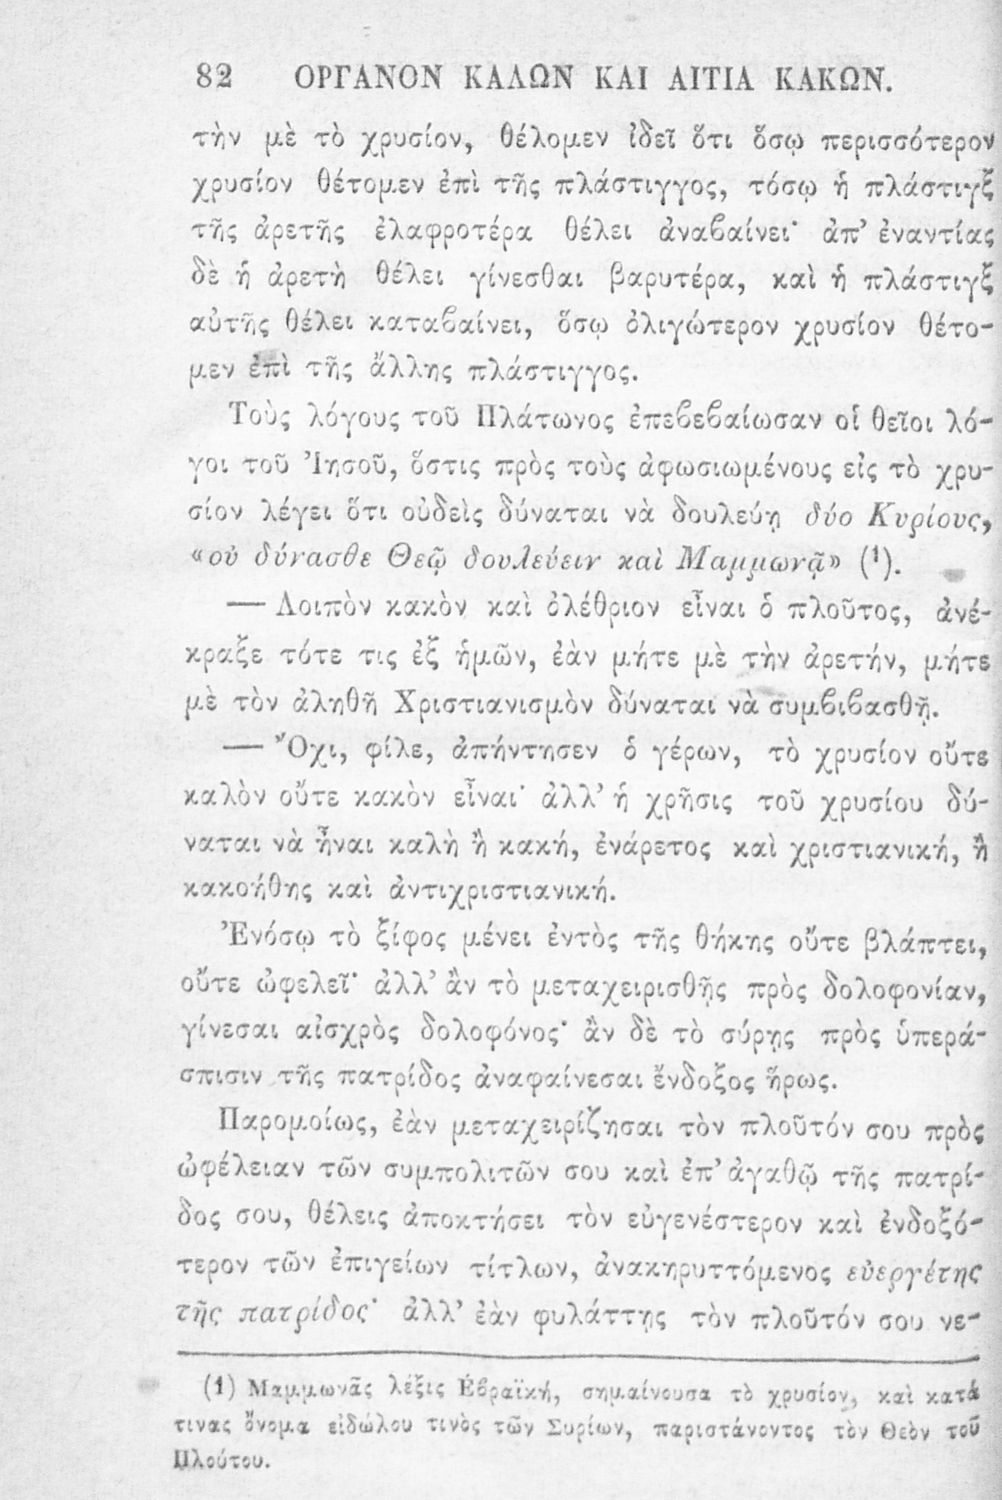 82 ΟΡΓΑΝΟΝ ΚΑΛΩΝ ΚΑΙ ΑΙΤΙΑ ΚΑΚΩΝ.
τὴν μὲ τὸ χρυσίον, θέλομεν ἰδεῖ ὅτι ὅσῳ περισσότερον
χρυσίον θέτομεν ἐπὶ τῆς πλάστιγγος, τόσῳ ἡ πλάστιγξ
τῆς ἀρετῆς ἐλαφροτέρα θέλει ἀναβαίνει· ἀπ’ ἐναντίας
δὲ ἡ ἀρετὴ θέλει γίνεσθαι βαρυτέρα, καὶ ἡ πλάστιγξ
αὐτῆς θέλει καταβαίνει, ὅσῳ ὀλιγώτερον χρυσίον θέτο-
μεν ἐπὶ τῆς ἄλλης πλάστιγγος.
Τοὺς λόγους τοῦ Πλάτωνος ἐπεβεβαίωσαν οἱ θεῖοι λό-
γοι τοῦ Ἰησοῦ, ὅστις πρὸς τοὺς ἀφωσιωμένους εἰς τὸ χρυ-
σίον λέγει ὅτι οὐδεὶς δύναται νὰ δουλεύῃ δύο Κυρίους,
«οὐ δύνασθε Θεῷ δουλεύειν καὶ Μαμμωνᾷ» (1).
— Λοιπὸν κακὸν καὶ ὀλέθριον εἶναι ὁ πλοῦτος, ἀνέ-
κραξε τότε τις ἐξ ἡμῶν, ἐὰν μήτε μὲ τὴν ἀρετήν, μήτε
μὲ τὸν ἀληθῆ Χριστιανισμὸν δύναται νὰ συμβιβασθῇ.
— Ὄχι, φίλε, ἀπήντησεν ὁ γέρων, τὸ χρυσίον οὔτε
καλὸν οὔτε κακὸν εἶναι· ἀλλ’ ἡ χρῆσις τοῦ χρυσίου δύ-
ναται νὰ ἦναι καλὴ ἢ κακή, ἐνάρετος καὶ χριστιανική, ἢ
κακοήθης καὶ ἀντιχριστιανική.
Ἐνόσῳ τὸ ξίφος μένει ἐντὸς τῆς θήκης οὔτε βλάπτει,
οὔτε ὠφελεῖ· ἀλλ’ ἂν τὸ μεταχειρισθῇς πρὸς δολοφονίαν,
γίνεσαι αἰσχρὸς δολοφόνος· ἂν δὲ τὸ σύρῃς πρὸς ὑπερά-
σπισιν τῆς πατρίδος ἀναφαίνεσαι ἔνδοξος ἥρως.
Παρομοίως, ἐὰν μεταχειρίζησαι τὸν πλοῦτόν σου πρὸς
ὠφέλειαν τῶν συμπολιτῶν σου καὶ ἐπ’ ἀγαθῷ τῆς πατρί-
δος σου, θέλεις ἀποκτήσει τὸν εὐγενέστερον καὶ ἐνδοξό-
τερον τῶν ἐπιγείων τίτλων, ἀνακηρυττόμενος εὐεργέτης
τῆς πατρίδος· ἀλλ’ ἐὰν φυλάττῃς τὸν πλοῦτόν σου νε-
(1) Μαμμωνᾶς λέξις Ἑβραϊκή, σημαίνουσα τὸ χρυσίον, καὶ κατά
τινας ὄνομα εἰδώλου τινὸς τῶν Συρίων, παριστάνοντος τὸν Θεὸν τοῦ
Πλούτου.